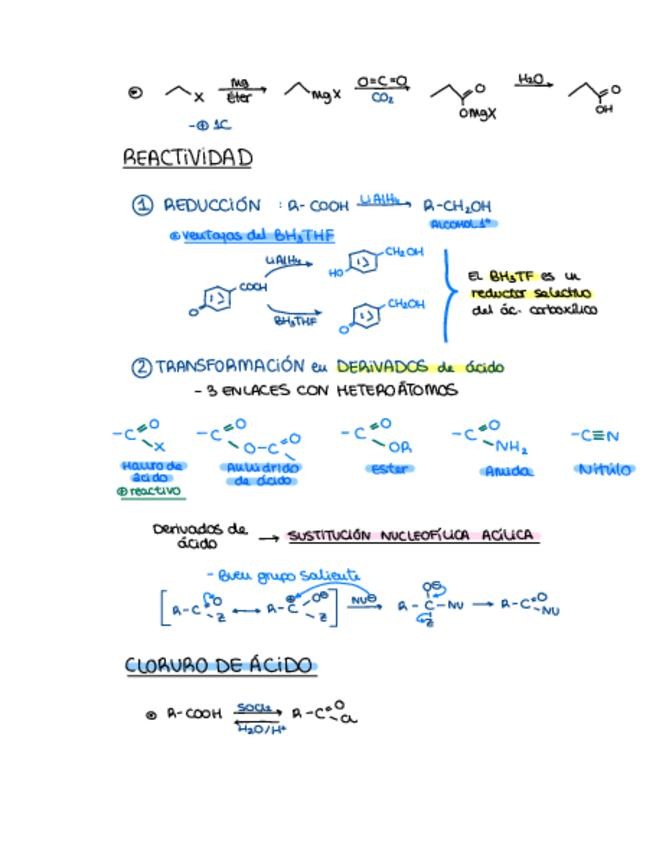 X Mg Éter MgX O=C=O CO₂ O OMgX H₂O O OH
-⊕ 1C
REACTIVIDAD
① REDUCCIÓN : R-COOH LiAlH₄ R-CH₂OH
ALCOHOL 1º
ventajas del BH₃THF
LiAlH₄ HO CH₂OH
O COOH
BH₃THF O CH₂OH
EL BH₃TF es un
reductor selectivo
del ác. carboxílico
② TRANSFORMACIÓN en DERIVADOS de ácido
- 3 ENLACES CON HETEROÁTOMOS
-C=O X -C=O O-C=O -C=O OR -C=O NH₂ -C≡N
Haluro de ácido
⊕ reactivo
Anhidrido de ácido
Ester
Amida
Nitrilo
Derivados de ácido → SUSTITUCIÓN NUCLEOFÍLICA ACÍLICA
- Buen grupo saliente
[R-C=O Z ↔ R-C⊕ O⊖ Z] Nu⊖ R-C-NU O⊖ Z → R-C=O NU
CLORURO DE ÁCIDO
R-COOH SOCl₂ H₂O/H⁺ R-C=O Cl